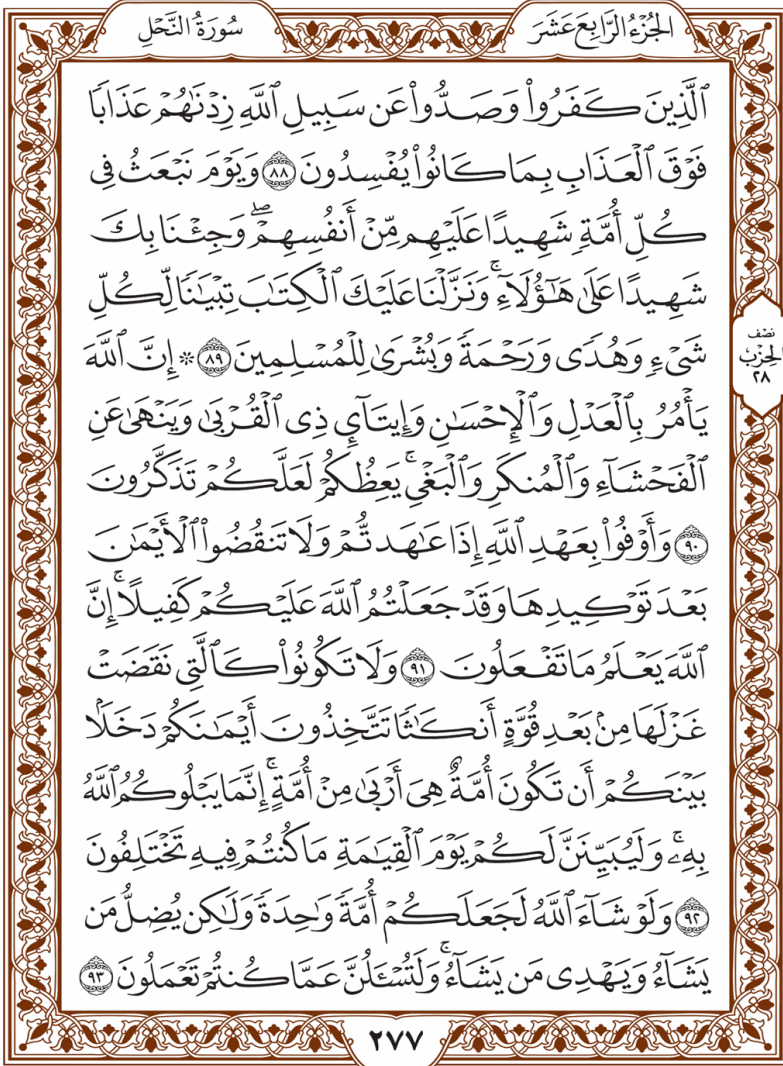 الجُزْءُ الرَّابِعَ عَشَرَ
سُورَةُ النَّحْلِ
ٱلَّذِينَ كَفَرُواْ وَصَدُّواْ عَن سَبِيلِ ٱللَّهِ زِدْنَٰهُمْ عَذَابًا
فَوْقَ ٱلْعَذَابِ بِمَا كَانُواْ يُفْسِدُونَ ٨٨ وَيَوْمَ نَبْعَثُ فِى
كُلِّ أُمَّةٍ شَهِيدًا عَلَيْهِم مِّنْ أَنفُسِهِمْۖ وَجِئْنَا بِكَ
شَهِيدًا عَلَىٰ هَٰٓؤُلَآءِۚ وَنَزَّلْنَا عَلَيْكَ ٱلْكِتَٰبَ تِبْيَٰنًا لِّكُلِّ
شَىْءٍ وَهُدًى وَرَحْمَةً وَبُشْرَىٰ لِلْمُسْلِمِينَ ٨٩ * إِنَّ ٱللَّهَ
يَأْمُرُ بِٱلْعَدْلِ وَٱلْإِحْسَٰنِ وَإِيتَآئِ ذِى ٱلْقُرْبَىٰ وَيَنْهَىٰ عَنِ
ٱلْفَحْشَآءِ وَٱلْمُنكَرِ وَٱلْبَغْىِۚ يَعِظُكُمْ لَعَلَّكُمْ تَذَكَّرُونَ
٩٠ وَأَوْفُواْ بِعَهْدِ ٱللَّهِ إِذَا عَٰهَدتُّمْ وَلَا تَنقُضُواْ ٱلْأَيْمَٰنَ
بَعْدَ تَوْكِيدِهَا وَقَدْ جَعَلْتُمُ ٱللَّهَ عَلَيْكُمْ كَفِيلًاۚ إِنَّ
ٱللَّهَ يَعْلَمُ مَا تَفْعَلُونَ ٩١ وَلَا تَكُونُواْ كَٱلَّتِى نَقَضَتْ
غَزْلَهَا مِنۢ بَعْدِ قُوَّةٍ أَنكَٰثًا تَتَّخِذُونَ أَيْمَٰنَكُمْ دَخَلًۢا
بَيْنَكُمْ أَن تَكُونَ أُمَّةٌ هِىَ أَرْبَىٰ مِنْ أُمَّةٍۚ إِنَّمَا يَبْلُوكُمُ ٱللَّهُ
بِهِۦۚ وَلَيُبَيِّنَنَّ لَكُمْ يَوْمَ ٱلْقِيَٰمَةِ مَا كُنتُمْ فِيهِ تَخْتَلِفُونَ
٩٢ وَلَوْ شَآءَ ٱللَّهُ لَجَعَلَكُمْ أُمَّةً وَٰحِدَةً وَلَٰكِن يُضِلُّ مَن
يَشَآءُ وَيَهْدِى مَن يَشَآءُۚ وَلَتُسْـَٔلُنَّ عَمَّا كُنتُمْ تَعْمَلُونَ ٩٣
نصْف
الحِزْب
٢٨
٢٧٧